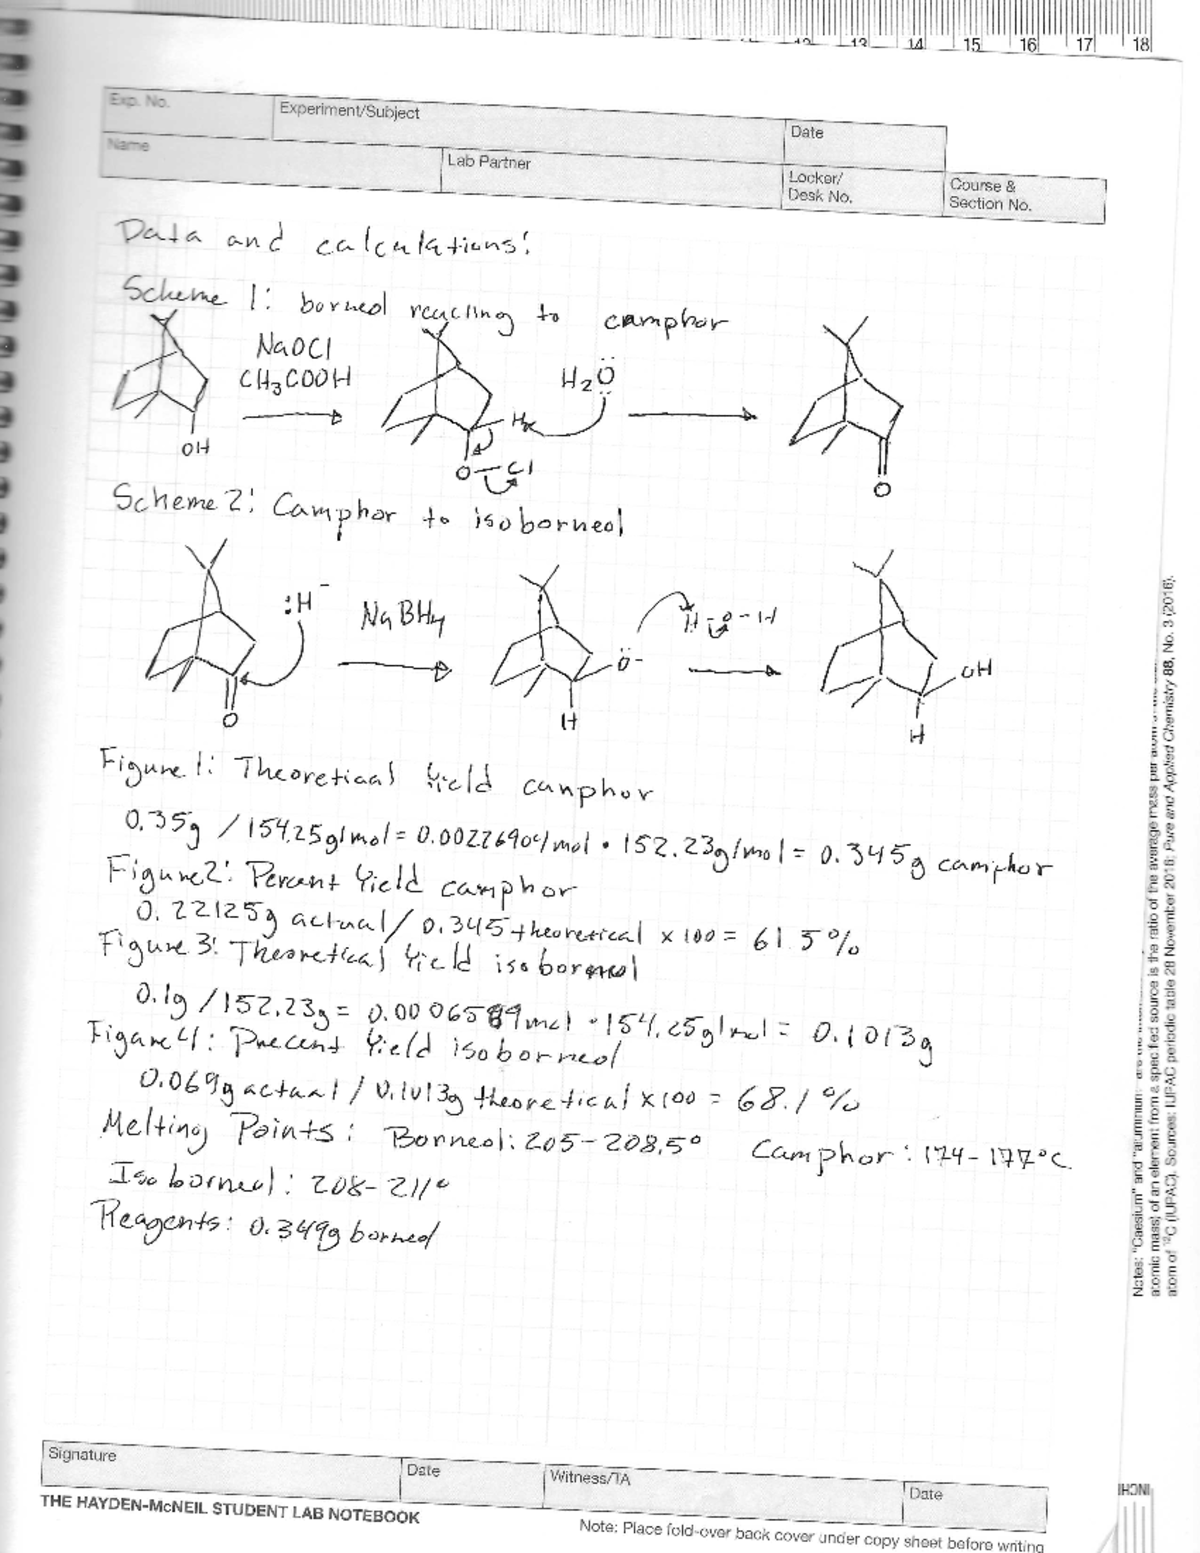 12 13 14 15 16 17 18
Exp. No. Experiment/Subject Date
Name Lab Partner Locker/ Desk No. Course & Section No.
Data and calculations:
Scheme 1: borneol reacting to camphor
NaOCl
CH3COOH
H2Ö
OH
H
O-Cl
O
Scheme 2: Camphor to isoborneol
:H-
NaBH4
H-O-H
Ö-
OH
O
H
H
Figure 1: Theoretical Yield camphor
0.35g / 154.25g/mol = 0.00226904 mol • 152.23g/mol = 0.345g camphor
Figure 2: Percent Yield camphor
0.22125g actual / 0.345 theoretical x 100 = 61.5%
Figure 3: Theoretical Yield isoborneol
0.1g / 152.23g = 0.0006569 mol • 154.25g/mol = 0.1013g
Figure 4: Precent Yield isoborneol
0.069g actual / 0.1013g theoretical x 100 = 68.1%
Melting Points: Borneol: 205-208.5° Camphor: 174-177°C
Isoborneol: 208-211°
Reagents: 0.349g borneol
Signature Date Witness/TA Date
THE HAYDEN-McNEIL STUDENT LAB NOTEBOOK
Note: Place fold-over back cover under copy sheet before writing
Notes: "Caesium" and "aluminium"
atomic mass) of an element from a specified source is the ratio of the average mass per atom
atom of 12C (IUPAC). Sources: IUPAC periodic table 28 November 2016; Pure and Applied Chemistry 88, No. 3 (2016).
INCH